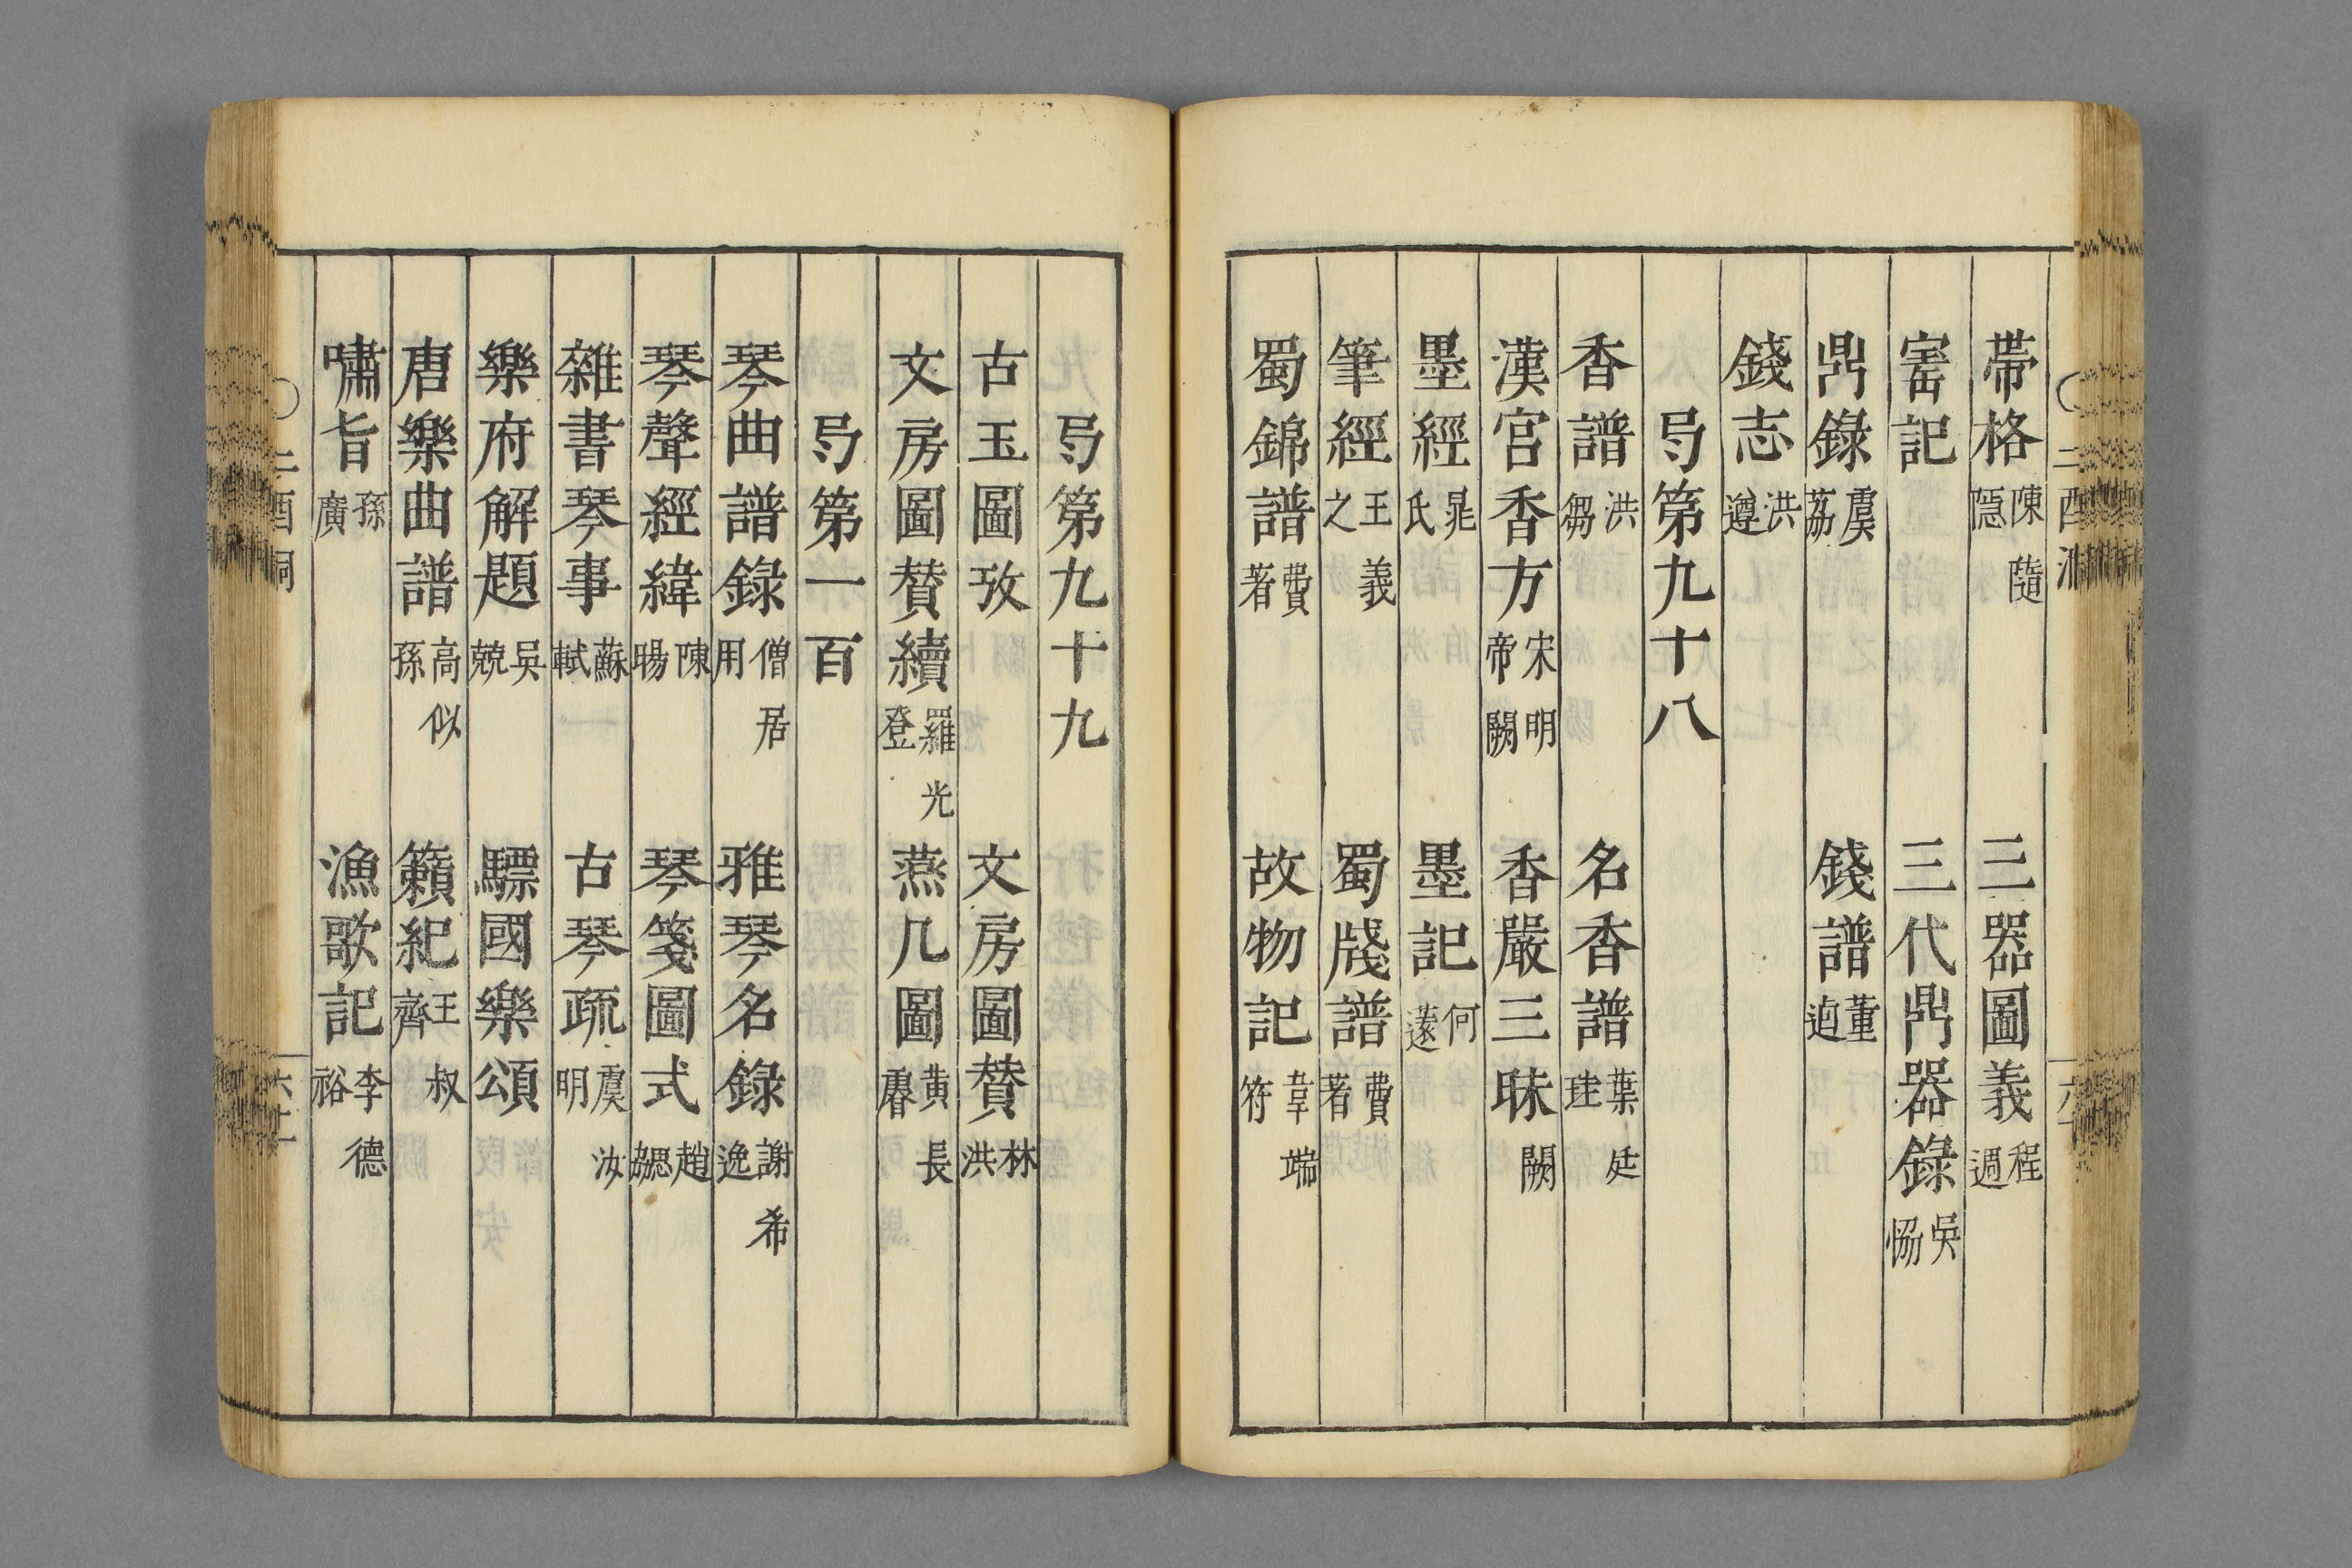 帶格 陳隨隱 三器圖義 程迥
窰記 三代鼎器錄 吳協
鼎錄 虞荔 錢譜 董逌
錢志 洪遵
弓第九十八
香譜 洪芻 名香譜 葉廷珪
漢宮香方 宋明帝闕 香嚴三昧 闕
墨經 晁氏 墨記 何薳
筆經 王義之 蜀牋譜 費著
蜀錦譜 費著 故物記 韋端符
弓第九十九
古玉圖攷 文房圖贊 林洪
文房圖贊續 羅光登 燕几圖 黃長睿
弓第一百
琴曲譜錄 僧居用 雅琴名錄 謝希逸
琴聲經緯 陳暘 琴箋圖式 趙勰
雜書琴事 蘇軾 古琴疏 虞汝明
樂府解題 吳兢 驃國樂頌
唐樂曲譜 高似孫 籟紀 王叔齊
嘯旨 孫廣 漁歌記 李德裕